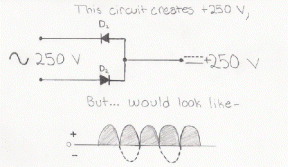 This circuit creates +250 V,
D₂
~ 250 V
+250 V
D₂
But... would look like-
+
-